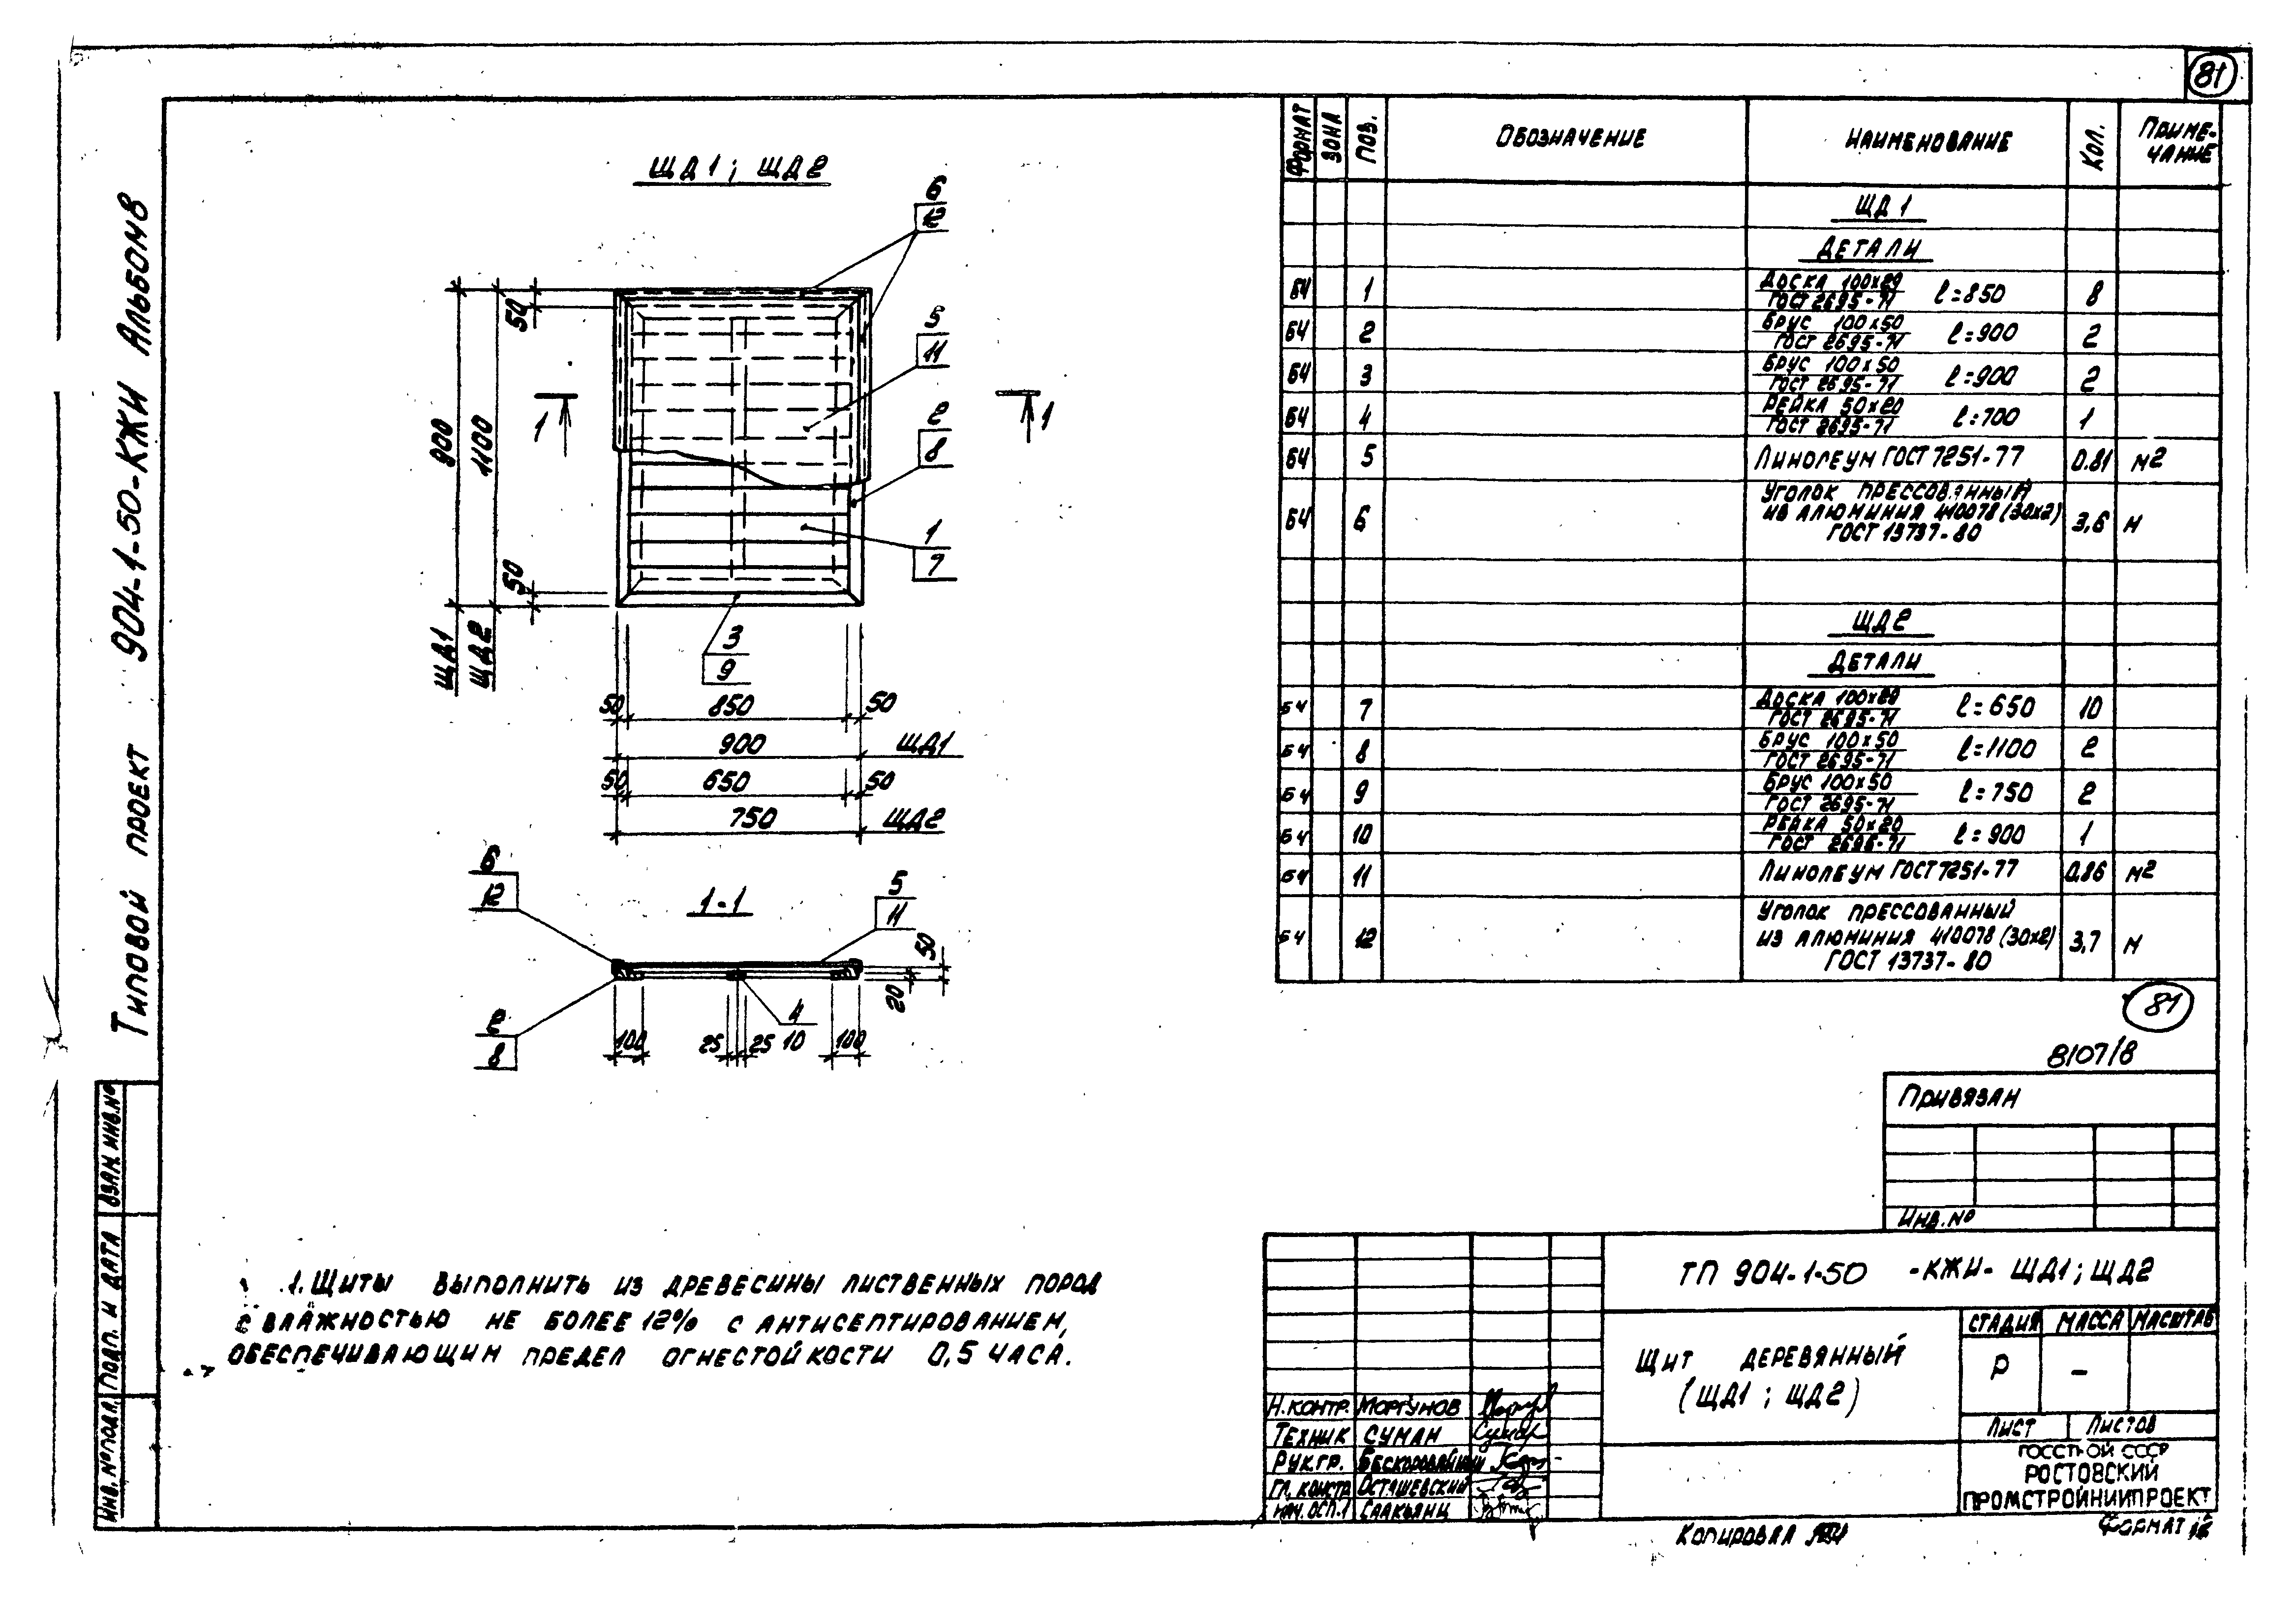 81
Типовой проект 904-1-50-КЖИ Альбом 8
ЩД1; ЩД2
6
12
5
11
2
8
1
7
3
9
50
900
1100
50
ЩД1
ЩД2
1
1
50 850 50
900 ЩД1
50 650 50
750 ЩД2
1-1
6
12
5
11
50
20
2
8
4
100 25 25 10 100
1. Щиты выполнить из древесины лиственных пород
с влажностью не более 12% с антисептированием,
обеспечивающим предел огнестойкости 0,5 часа.
Формат Зона Поз. Обозначение Наименование Кол. Приме-
чание
ЩД1
Детали
БЧ 1 Доска 100х29 ℓ=850 8
ГОСТ 2695-71
БЧ 2 Брус 100х50 ℓ=900 2
ГОСТ 2695-71
БЧ 3 Брус 100х50 ℓ=900 2
ГОСТ 2695-71
БЧ 4 Рейка 50х20 ℓ=700 1
ГОСТ 2695-71
БЧ 5 Линолеум ГОСТ 7251-77 0.81 м2
Уголок прессованный
БЧ 6 из алюминия 410078 (30х2) 3,6 м
ГОСТ 13737-80
ЩД2
Детали
БЧ 7 Доска 100х29 ℓ=650 10
ГОСТ 2695-71
БЧ 8 Брус 100х50 ℓ=1100 2
ГОСТ 2695-71
БЧ 9 Брус 100х50 ℓ=750 2
ГОСТ 2695-71
БЧ 10 Рейка 50х20 ℓ=900 1
ГОСТ 2695-71
БЧ 11 Линолеум ГОСТ 7251-77 0.86 м2
Уголок прессованный
БЧ 12 из алюминия 410078 (30х2) 3,7 м
ГОСТ 13737-80
81
8107/8
Привязан
Инв.№
ТП 904-1-50 -КЖИ- ЩД1; ЩД2
Щит деревянный
(ЩД1; ЩД2)
Стадия Масса Масштаб
Р -
Лист Листов
Госстрой СССР
Ростовский
Промстройниипроект
Н.контр. Моргунов
Техник Суман
Рук.гр. Бескоровайный
Гл. констр. Осташевский
Нач. ОСП-1 Саакьянц
Копировал
Формат 12
Инв. № подл. Подп. и дата Взам. инв.№